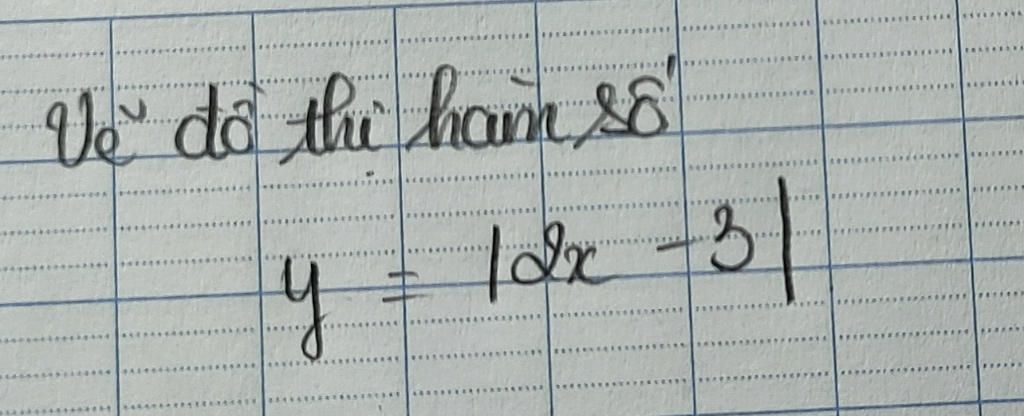 Vẽ đồ thị hàm số
y = |2x - 3|